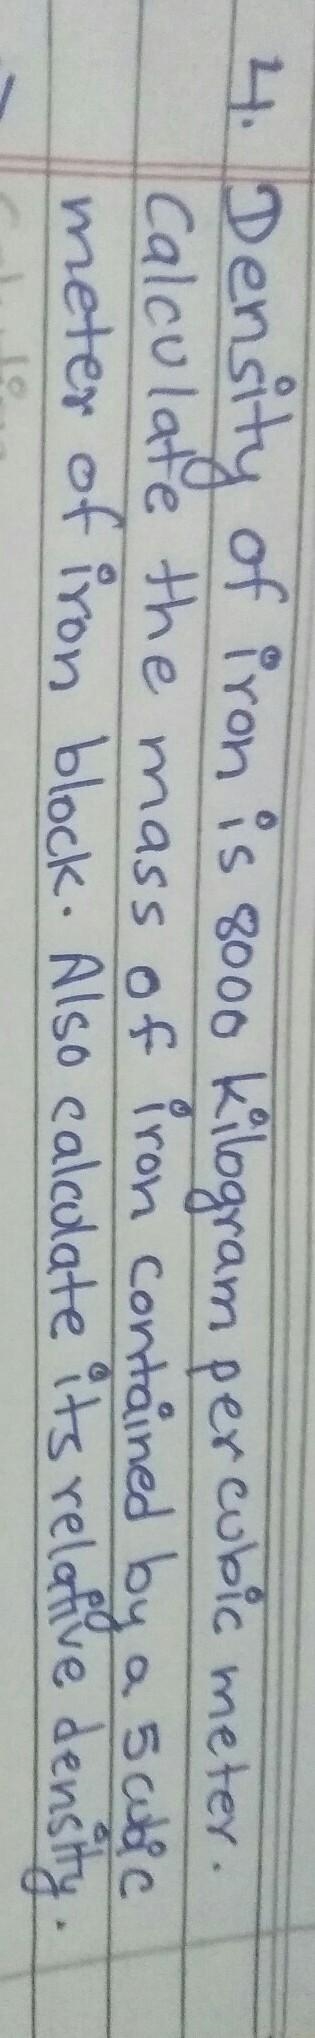 4. Density of iron is 8000 kilogram per cubic meter.
Calculate the mass of iron contained by a 5 cubic
meter of iron block. Also calculate its relative density.